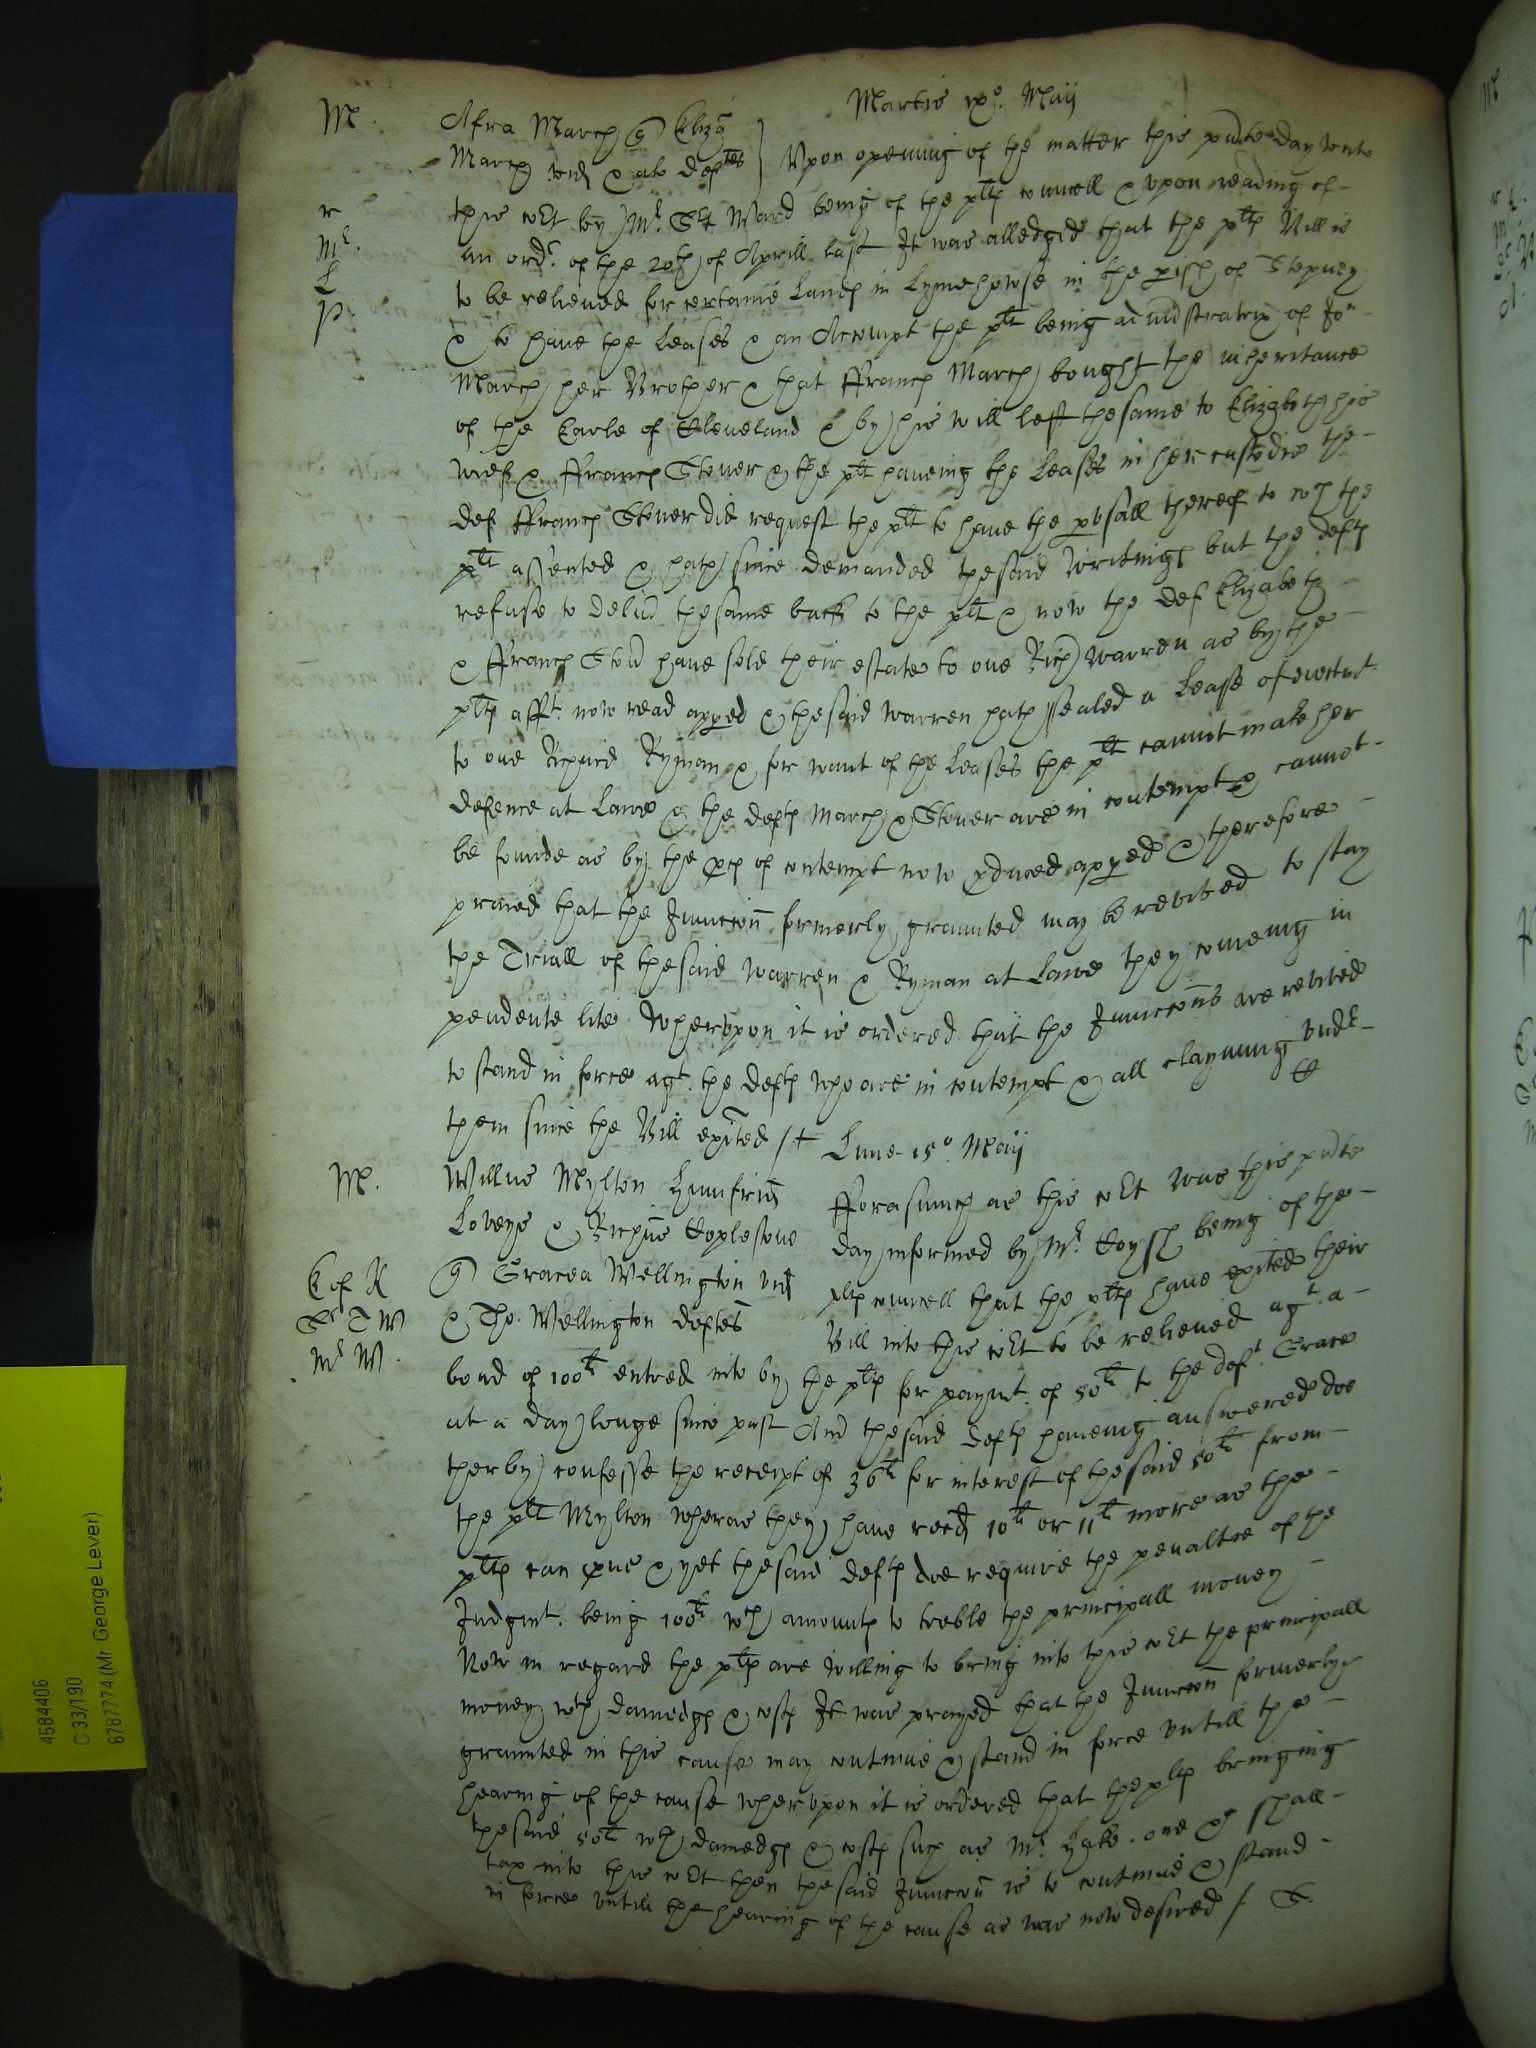 Martis ixo. Maij
M. Afra March q Eliza
March vid & al deftes } Upon opening of the matter this pnte day unto
this coᵗ by Mʳ. Sᵗ. Ward being of the pltfs councell & upon reading of
an ordʳ. of the 20th of Aprill last It was alledged that the pltfs Bill is
to be relieued for certaine Lands in Lymehowse in the pish of Stepney
& to haue the Leases & an Accompt the plt being administratrix of Jo
March her Brother & that ffrancs March bought the inheritance
of the Earle of Cleueland & by his will left the same to Elizabeth his
wief & ffrancs Stouer & the plt haueing the Leases in her custodie the
def ffrancs Stouer did request the plt to haue the pusall thereof to wch the
plt assented & hath since demanded the said writings but the defts
refuse to deliu the same back to the plt & now the def Elizabeth
& ffrancs Stou haue sold their estate to one Rich warren as by the
plts afft. now read apped & the said warren hath sealed a Lease of eiectmt.
to one Richard Ryman & for want of the Leases the plt cannot make her
defence at Lawe & the defts March & Stouer are in contempt & cannot
be founde as by the pces of contempt now pduced apped & therefore
praied that the Iniunccon formerly graunted may be reuiued to stay
the Triall of the said warren & Ryman at Lawe they comeing in
pendente lite Wherupon it is ordered that the Iniunccons are reuiued
to stand in force agt. the defts who are in contempt & all clayming undr
them since the Bill exited /
Lune 15o Maij
M. Willus Mylton Humfrid
Loveys & Richus Coplestone
q Gracea Wellington vid
& Tho. Wellington deftes
fforasmuch as this coᵗ was this pnte
day informed by Mʳ. Coysh being of the
pltfs councell that the pltfs haue exited their
Bill into this coᵗ to be relieued agt. a
E of K
Sʳ T W
Mʳ W.
bond of 100li entred into by the pltfs for paymt. of 50li to the deft. Grace
at a day longe since past And the said defts haueing answered doe
therby confesse the receipt of 36li for interest of the said 50li from
the plt Mylton wheras they haue recd 10li or 11li more as the
pltfs can pue & yet the said defts doe require the penaltie of the
Judgmt. being 100li wch amounts to treble the principall money
Now in regard the pltfs are willing to bring into this coᵗ the principall
money wth damedgs & costs It was prayed that the Iniunccon formerly
graunted in this cause may continue & stand in force untill the
hearing of the cause wherupon it is ordered that the pltfs bringing
the said 50li wth damedgs & costs such as Mʳ. one &c shall
tax into this coᵗ then the said Iniunccon is to continue & stand
in force untill the hearing of the cause as was now desired /
4584406
C 33/190
6787774 (Mr. George Lever)